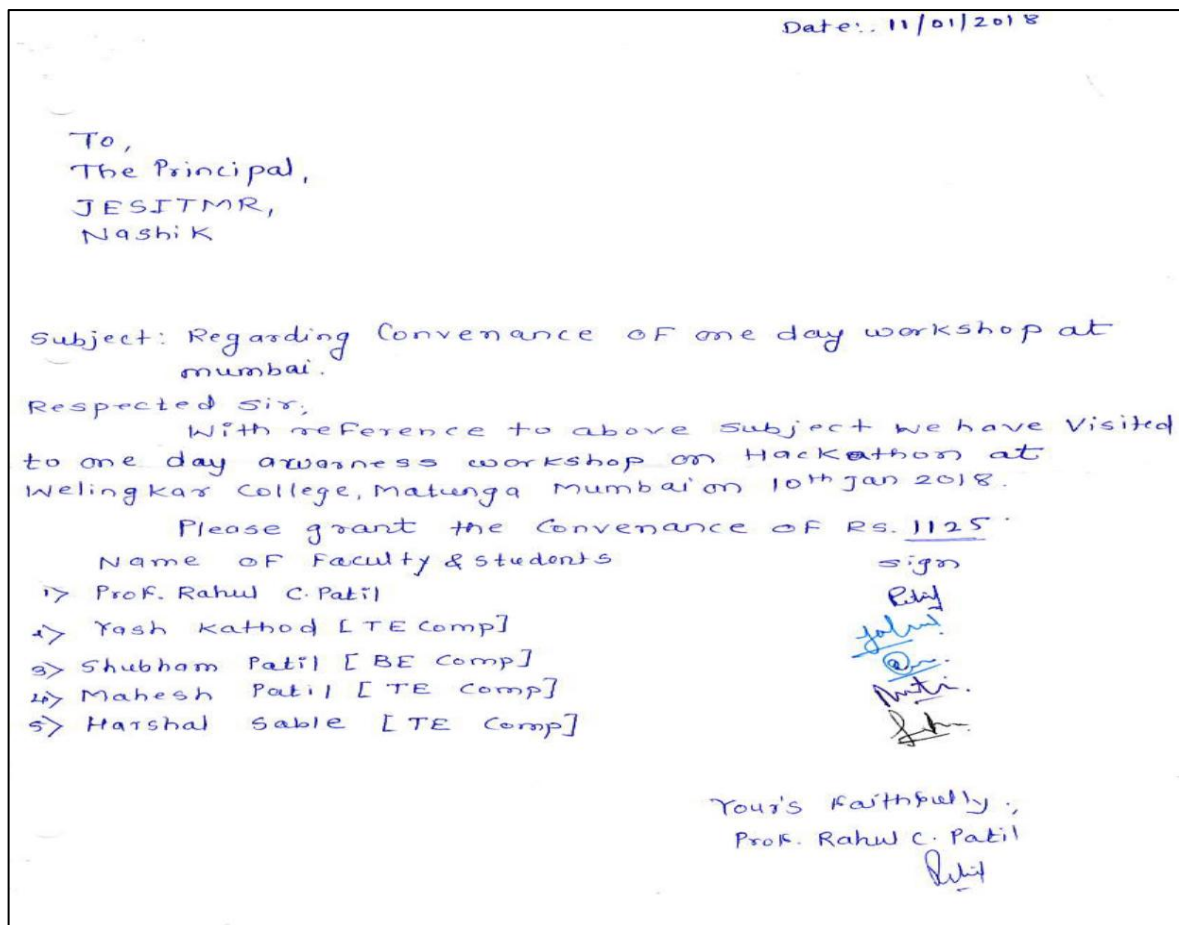 Date:. 11/01/2018
To,
The Principal,
JESITMR,
Nashik
Subject: Regarding Convenance of one day workshop at
mumbai.
Respected Sir,
With reference to above subject we have Visited
to one day awarness workshop on Hackathon at
Welingkar College, Matunga Mumbai on 10th Jan 2018.
Please grant the Convenance of Rs. 1125.
Name of Faculty & students sign
1> Prof. Rahul C. Patil
2> Yash Kathod [TE Comp]
3> Shubham Patil [BE Comp]
4> Mahesh Patil [TE Comp]
5> Harshal Sable [TE Comp]
Your's Faithfully,
Prof. Rahul C. Patil